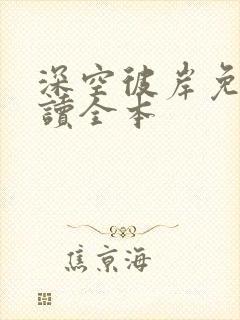 深空彼岸免
讀全本
焦京海